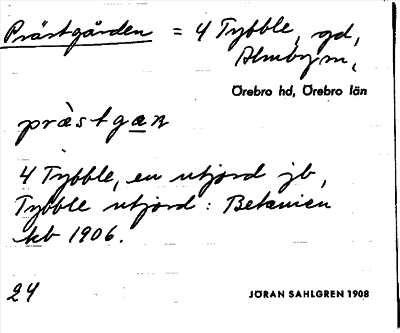 Prästgården = 4 Tybble, gd,
Almby sn,
Örebro hd, Örebro län
pràstgan
4 Tybble, en utjord jb,
Tybble utjord: Betanien
kb 1906.
24
JÖRAN SAHLGREN 1908